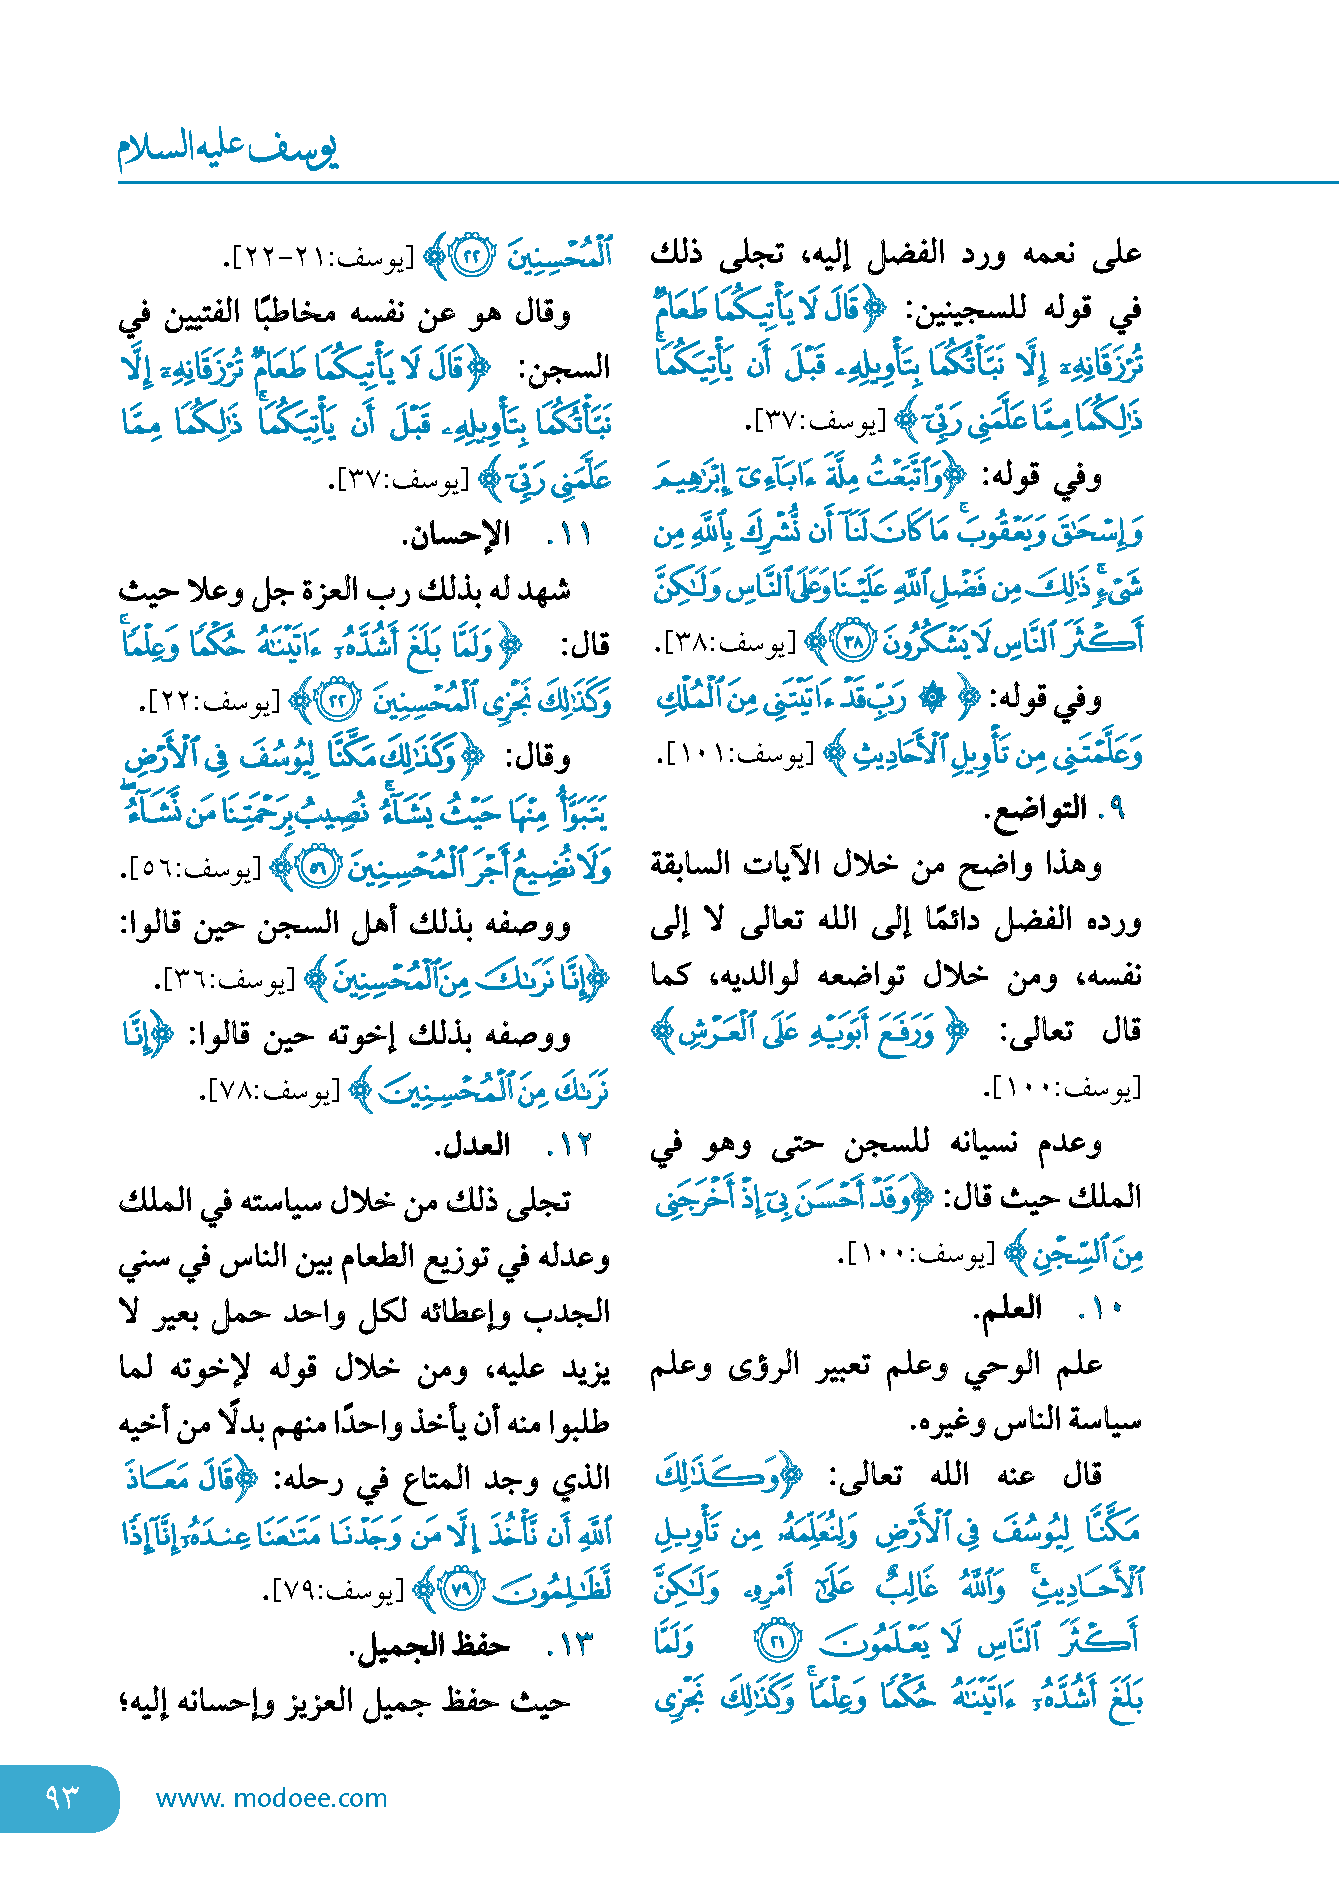 يوسف عليه السلام
على نعمه ورد الفضل إليه، تجلى ذلك
في قوله للسجينين: ﴿قَالَ لَا يَأْتِيكُمَا طَعَامٌ
تُرْزَقَانِهِۦٓ إِلَّا نَبَّأْتُكُمَا بِتَأْوِيلِهِۦ قَبْلَ أَن يَأْتِيَكُمَا ۚ
ذَٰلِكُمَا مِمَّا عَلَّمَنِى رَبِّىٓ﴾ [يوسف:٣٧].
وفي قوله: ﴿وَٱتَّبَعْتُ مِلَّةَ ءَابَآءِىٓ إِبْرَٰهِيمَ
وَإِسْحَٰقَ وَيَعْقُوبَ ۚ مَا كَانَ لَنَآ أَن نُّشْرِكَ بِٱللَّهِ مِن
شَىْءٍ ۚ ذَٰلِكَ مِن فَضْلِ ٱللَّهِ عَلَيْنَا وَعَلَى ٱلنَّاسِ وَلَٰكِنَّ
أَكْثَرَ ٱلنَّاسِ لَا يَشْكُرُونَ ٣٨﴾ [يوسف:٣٨].
وفي قوله: ﴿۞ رَبِّ قَدْ ءَاتَيْتَنِى مِنَ ٱلْمُلْكِ
وَعَلَّمْتَنِى مِن تَأْوِيلِ ٱلْأَحَادِيثِ﴾ [يوسف:١٠١].
٩. التواضع.
وهذا واضح من خلال الآيات السابقة
ورده الفضل دائمًا إلى الله تعالى لا إلى
نفسه، ومن خلال تواضعه لوالديه، كما
قال تعالى: ﴿وَرَفَعَ أَبَوَيْهِ عَلَى ٱلْعَرْشِ﴾
[يوسف:١٠٠].
وعدم نسيانه للسجن حتى وهو في
الملك حيث قال: ﴿وَقَدْ أَحْسَنَ بِىٓ إِذْ أَخْرَجَنِى
مِنَ ٱلسِّجْنِ﴾ [يوسف:١٠٠].
١٠. العلم.
علم الوحي وعلم تعبير الرؤى وعلم
سياسة الناس وغيره.
قال عنه الله تعالى: ﴿وَكَذَٰلِكَ
مَكَّنَّا لِيُوسُفَ فِى ٱلْأَرْضِ وَلِنُعَلِّمَهُۥ مِن تَأْوِيلِ
ٱلْأَحَادِيثِ ۚ وَٱللَّهُ غَالِبٌ عَلَىٰٓ أَمْرِهِۦ وَلَٰكِنَّ
أَكْثَرَ ٱلنَّاسِ لَا يَعْلَمُونَ ٢١ وَلَمَّا
بَلَغَ أَشُدَّهُۥٓ ءَاتَيْنَٰهُ حُكْمًا وَعِلْمًا ۚ وَكَذَٰلِكَ نَجْزِى
ٱلْمُحْسِنِينَ ٢٢﴾ [يوسف:٢١-٢٢].
وقال هو عن نفسه مخاطبًا الفتيين في
السجن: ﴿قَالَ لَا يَأْتِيكُمَا طَعَامٌ تُرْزَقَانِهِۦٓ إِلَّا
نَبَّأْتُكُمَا بِتَأْوِيلِهِۦ قَبْلَ أَن يَأْتِيَكُمَا ۚ ذَٰلِكُمَا مِمَّا
عَلَّمَنِى رَبِّىٓ﴾ [يوسف:٣٧].
١١. الإحسان.
شهد له بذلك رب العزة جل وعلا حيث
قال: ﴿وَلَمَّا بَلَغَ أَشُدَّهُۥٓ ءَاتَيْنَٰهُ حُكْمًا وَعِلْمًا ۚ
وَكَذَٰلِكَ نَجْزِى ٱلْمُحْسِنِينَ ٢٢﴾ [يوسف:٢٢].
وقال: ﴿وَكَذَٰلِكَ مَكَّنَّا لِيُوسُفَ فِى ٱلْأَرْضِ
يَتَبَوَّأُ مِنْهَا حَيْثُ يَشَآءُ ۚ نُصِيبُ بِرَحْمَتِنَا مَن نَّشَآءُ ۖ
وَلَا نُضِيعُ أَجْرَ ٱلْمُحْسِنِينَ ٥٦﴾ [يوسف:٥٦].
ووصفه بذلك أهل السجن حين قالوا:
﴿إِنَّا نَرَىٰكَ مِنَ ٱلْمُحْسِنِينَ﴾ [يوسف:٣٦].
ووصفه بذلك إخوته حين قالوا: ﴿إِنَّا
نَرَىٰكَ مِنَ ٱلْمُحْسِنِينَ﴾ [يوسف:٧٨].
١٢. العدل.
تجلى ذلك من خلال سياسته في الملك
وعدله في توزيع الطعام بين الناس في سني
الجدب وإعطائه لكل واحد حمل بعير لا
يزيد عليه، ومن خلال قوله لإخوته لما
طلبوا منه أن يأخذ واحدًا منهم بدلًا من أخيه
الذي وجد المتاع في رحله: ﴿قَالَ مَعَاذَ
ٱللَّهِ أَن نَّأْخُذَ إِلَّا مَن وَجَدْنَا مَتَٰعَنَا عِندَهُۥٓ إِنَّآ إِذًا
لَّظَٰلِمُونَ ٧٩﴾ [يوسف:٧٩].
١٣. حفظ الجميل.
حيث حفظ جميل العزيز وإحسانه إليه؛
www. modoee.com
٩٣